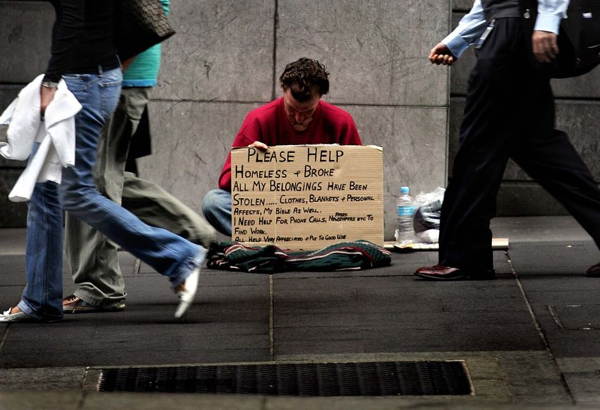 Please Help
Homeless + Broke
All My Belongings Have Been
Stolen..... Clothes, Blankets + Personal
Affects, My Bible As Well..
I Need Help For Phone Calls, Newspapers etc To
Find Work.
All Help Very Appreciated + Put To Good Use